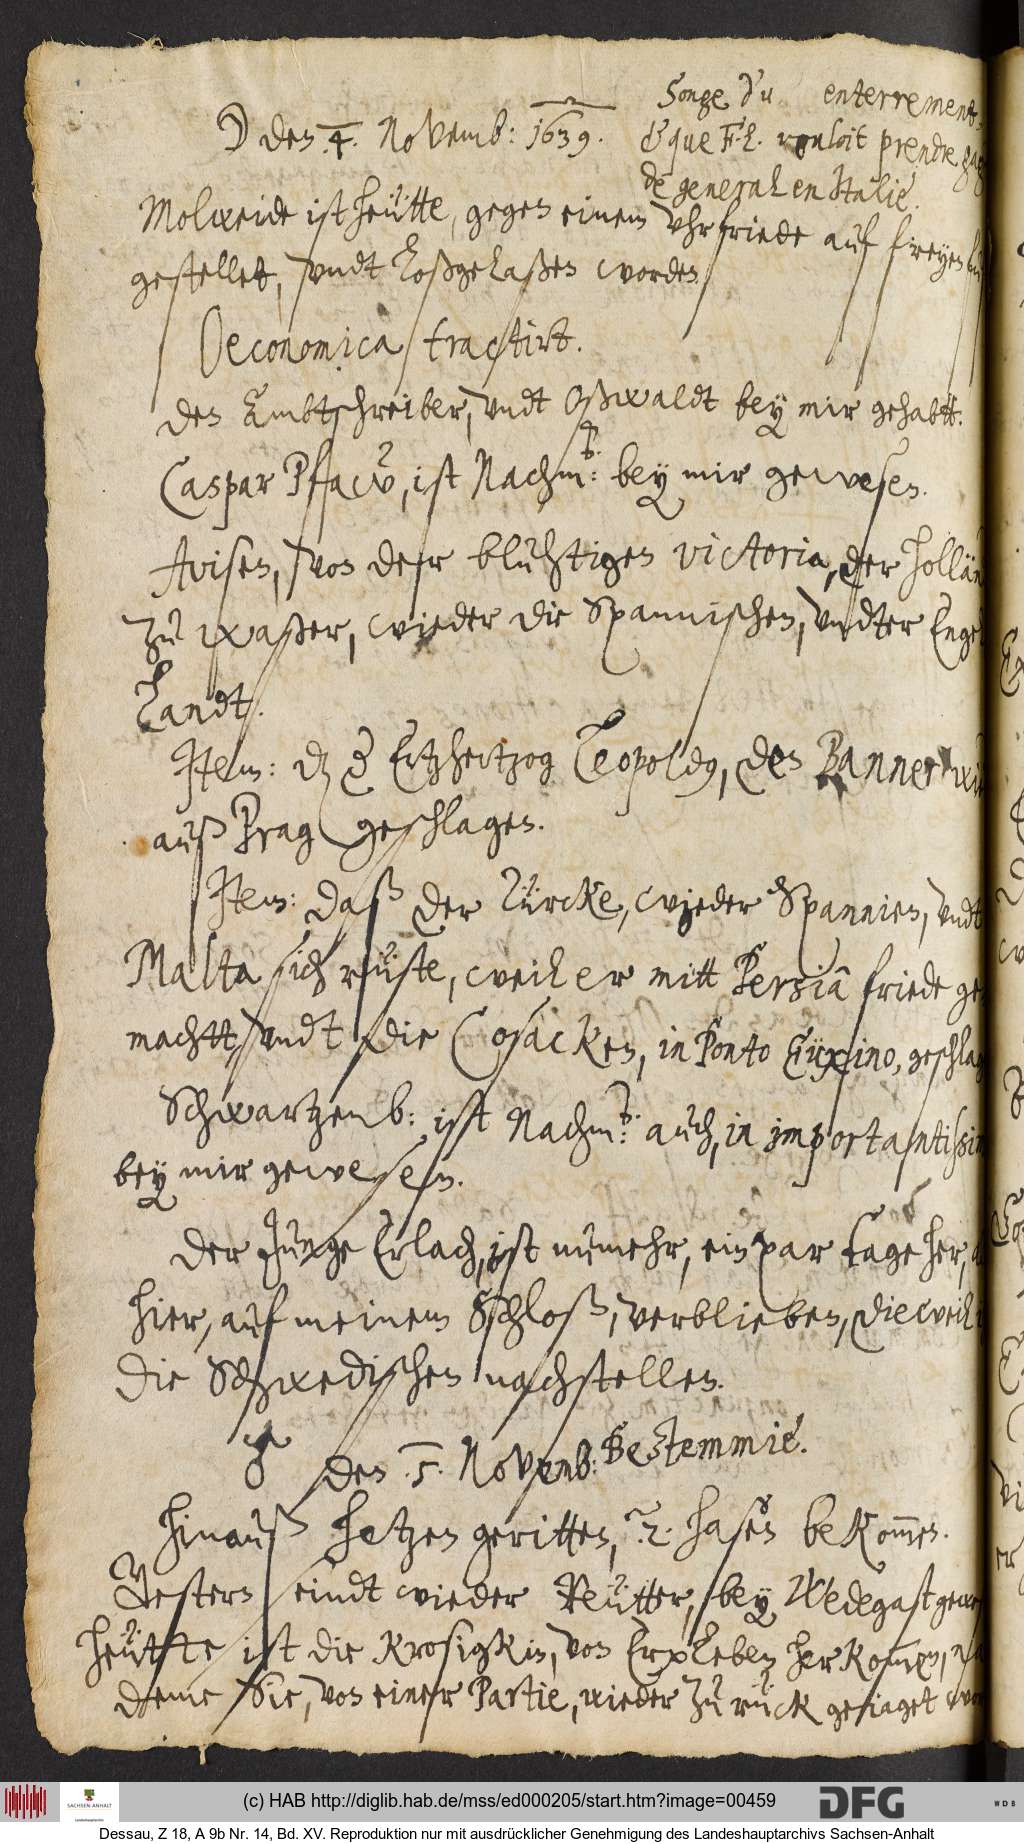 ☽ den .4. Novemb: 1639.
Songe d'u enterrement
& que F. L. vouloit prendre
de general en Italie.
Molweide ist heütte, gegen einem vhrfriede auf freyen
gestellet, vndt loßgelaßen worden.
Oeconomica tractirt.
Den Ambtschreiber, vndt Oßwaldt bey mir gehabtt.
Caspar Pfaw, ist Nachm: bey mir gewesen.
Avisen, von der bluhtigen victoria, der Hollän
zu waßer, wieder die Spannischen, vndter Enge
landt.
Item: dz Ertzhertzog Leopoldus, den Banner
auß Prag geschlagen.
Item: daß der Türcke, wieder Spannien, vndt
Malta sich rüste, weil er mitt Persia friede ge
machtt, vndt die Cosacken, in Ponto Euxino, geschla
Schwartzenb: ist Nachm: auch, in importantissi
bey mir gewesen.
Der Junge Erlach, ist numehr, ein par tage her,
hier, auf meinem Schloß, verblieben, dieweil
die Schwedischen nachstellen.
♂ den .5. Novemb: Bestemmie.
Hinauß hetzen geritten, 2. hasen bekommen.
Gestern seindt wieder Reütter, bey Wedegast gewe
heütte ist die Krosigkin, von Erxleben her kommen,
deme Sie, von einer Partie, wieder zu rück geiaget wor
(c) HAB http://diglib.hab.de/mss/ed000205/start.htm?image=00459
SACHSEN-ANHALT
Landeshauptarchiv
DFG
WDB
Dessau, Z 18, A 9b Nr. 14, Bd. XV. Reproduktion nur mit ausdrücklicher Genehmigung des Landeshauptarchivs Sachsen-Anhalt